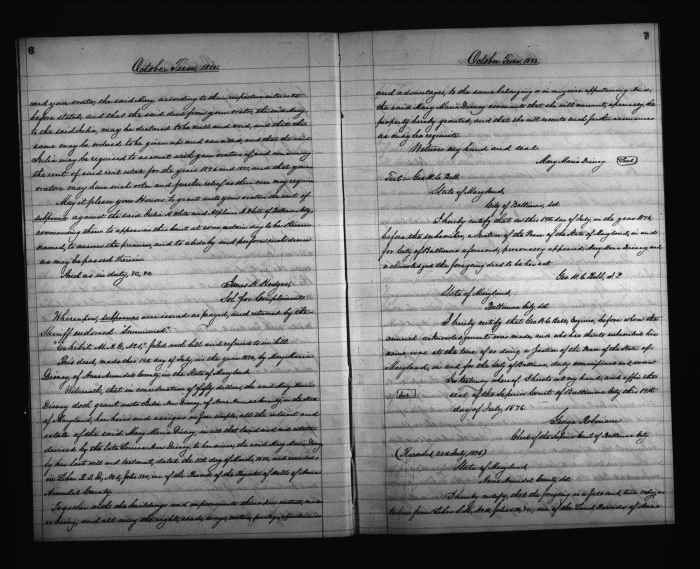 6
October Term, 1882
and your orator, the said Mary, according to their respective interests
before stated, and that the said deed from your orator, the said Mary
to the said Julia, may be declared to be null and void, and that the
same may be ordered to be given up and cancelled, and that the said
Julia may be required to account with your orators of and concerning
the rent of said real estate for the years 1876 and 1877, and that your
orators may have such other and further relief as their case may require
May it please your Honors to grant unto your orators the writ of
subpoena against the said Julia A. White and White of Baltimore City
commanding them to appear in this Court at some certain day to be therein
named, to answer the premises, and to abide by and perform such decree
as may be passed therein
And as in duty, &c, &c.
James R. Hodges,
Sol. for Complainants
Whereupon, subpoenas are issued as prayed, and returned by the
Sheriff endorsed "Summoned"
"Exhibit M. & C., No 1," filed with bill and referred to in bill
This deed, made this day of July, in the year 1876, by Mary Maria
Disney, of Anne Arundel County, in the State of Maryland
Witnesseth, that in consideration of fifty dollars, the said Mary Maria
Disney doth grant unto Julia Ann Disney, of Anne Arundel County, in the State
of Maryland, her heirs and assigns, in fee simple, all the interest and
estate of the said Mary Maria Disney, in all that land and real estate
devised by the late Disney, to her nieces, the said Mary Maria Disney
by her last will and testament, dated the 11th day of March, and recorded
in Liber folio one of the Records of the Register of Wills of Anne
Arundel County
Together with the buildings and improvements thereon, erected, made
or being, and all every the rights, roads, ways, waters, privileges, appurtenances
7
October Term, 1882
and advantages, to the same belonging or in anywise appertaining. And,
the said Mary Maria Disney covenants that she will warrant specially the
property hereby granted, and that she will execute such further assurances
as may be requisite
Witness my hand and seal.
Mary Maria Disney (Seal)
Test - Geo. H. C. Bell
State of Maryland,
City of Baltimore, Sct
I hereby certify that on this 19th day of July, in the year 1876,
before the subscriber, a Justice of the Peace of the State of Maryland, in and
for City of Baltimore aforesaid, personally appeared Mary Maria Disney and
acknowledged the foregoing deed to be her act
Geo. H. C. Bell, J.P.
State of Maryland,
Baltimore City, Sct
I hereby certify that Geo. H. C. Bell, Esquire, before whom the
annexed acknowledgment was made, and who has thereto subscribed his
name, was, at the time of so doing, a Justice of the Peace of the State of
Maryland, in and for the City of Baltimore, duly commissioned and sworn
In testimony whereof, I hereto set my hand, and affix the
(Seal) seal of the Superior Court of Baltimore City, this 19th
day of July, 1876.
George Robinson
Clerk of the Superior Court of Baltimore City
(Recorded, 22d July, 1876)
State of Maryland,
Anne Arundel County, Sct
I hereby certify, that the foregoing is a full and true copy, as
taken from Liber folio &c., one of the Land Records of Anne